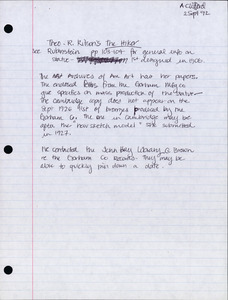 A Clifford
2 Sept 92
Theo. R. Kitson's The Hiker
see Rubinstein pp 103-104 for general info on
1st designed in 1906.
The Archives of Am Art has her papers.
The enclosed from the Gorham Mfg Co
give specifics on mass production of the statue
The Cambridge copy does not appear on the
Sept 1926 list of bronzes placed by the
Gorham Co. The one in Cambridge may be
upon the "new sketch model" she submitted
in 1927.
We contacted the John Hay Library @ Brown
re the Gorham Co Records. They may be
able to quickly pin down a date.